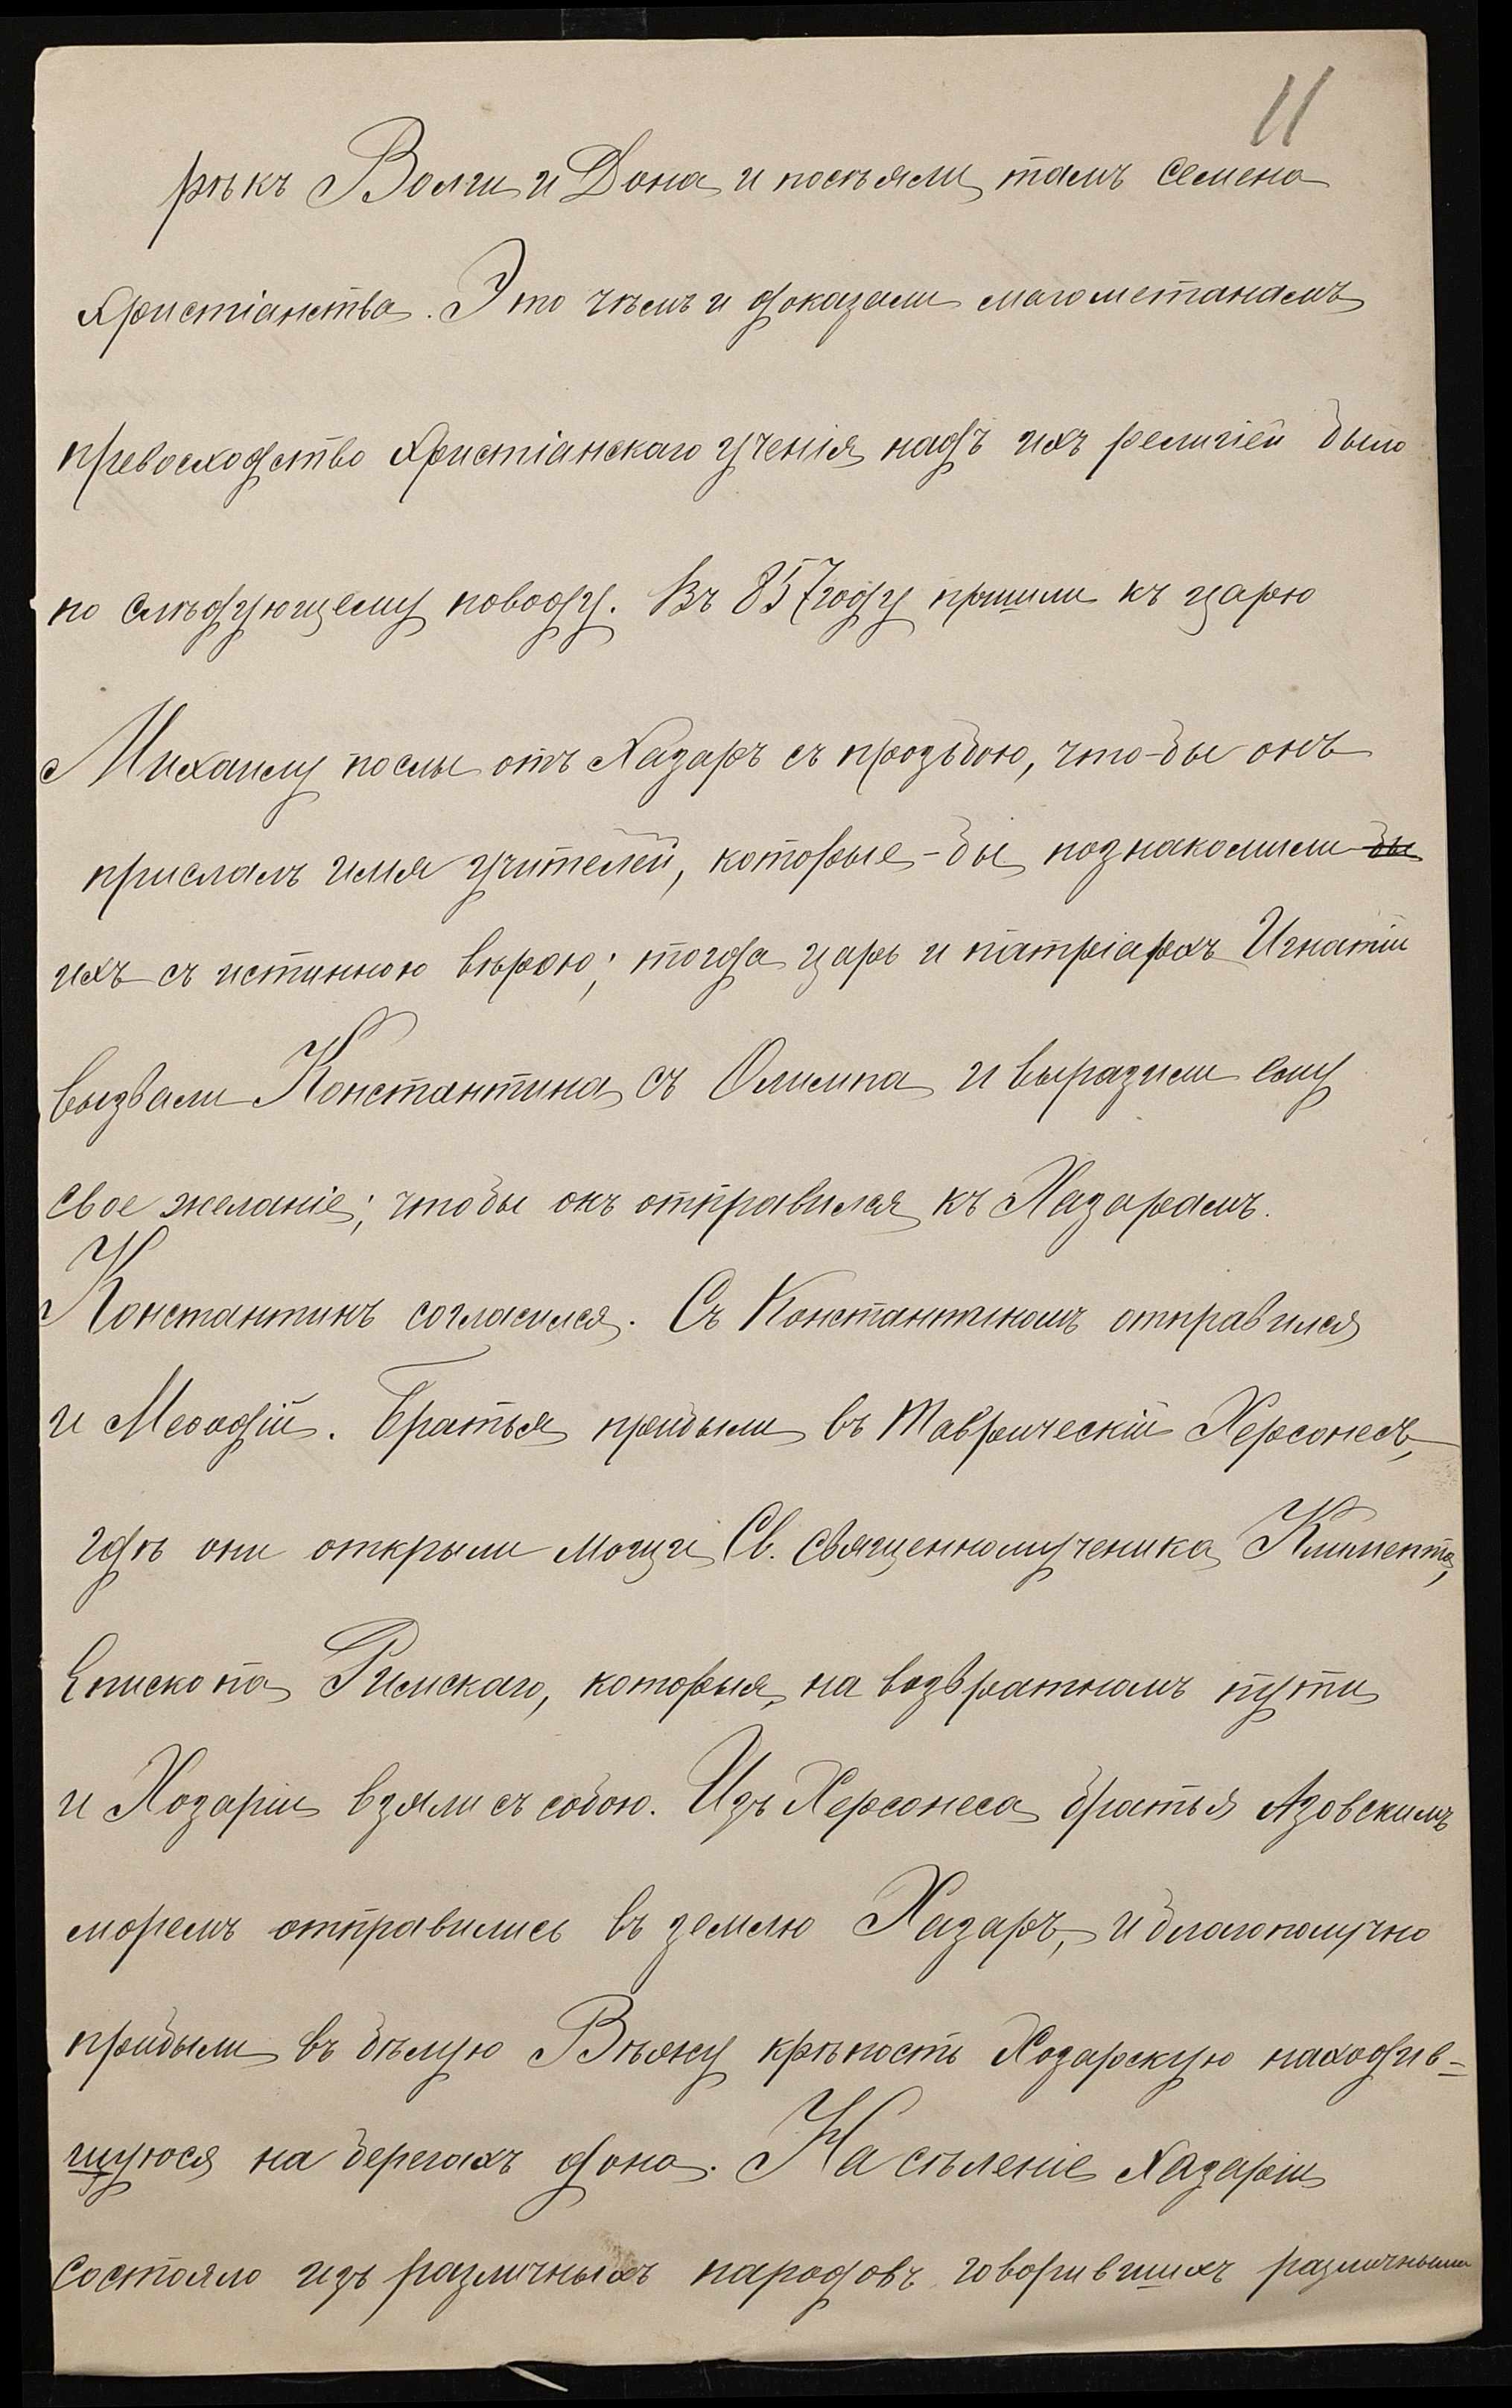 11
рѣкъ Волги и Дона и посѣяли тамъ семена
Христіанства. Это чѣмъ и доказали магометанамъ
превосходство Христіанскаго ученія надъ ихъ религіей было
по слѣдующему поводу. Въ 857 году пришли къ царю
Михаилу послы отъ Хазаръ съ прозьбою, что-бы онъ
прислалъ имя учителей, которые-бы познакомили бы
ихъ съ истинною вѣрою; тогда царь и патріархъ Игнатій
вызвали Константина съ Олимпа и выразили ему
свое желаніе; чтобы онъ отправился къ Хазарамъ.
Константинъ согласился. Съ Константиномъ отправился
и Меѳодій. Братья прибыли въ Таврическій Херсонесъ,
гдѣ они открыли мощи Св. Священномученика Климента,
Епископа Римскаго, которыя, на возвратномъ пути
и Хозаріи взяли съ собою. Изъ Херсонеса братья Азовскимъ
моремъ отправились въ землю Хазаръ, и благополучно
прибыли въ бѣлую Вѣжу крѣпость Хозарскую находив-
шуюся на берегахъ дона. Насѣленіе Хазаріи
состояло изъ различныхъ народовъ говорившихъ различными